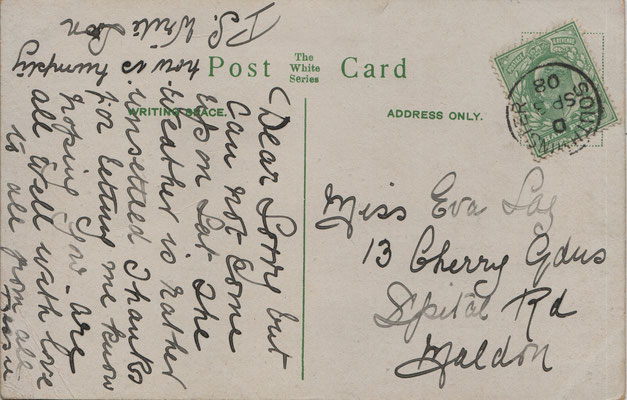 Post Card
The
White
Series
WRITING SPACE.
ADDRESS ONLY.
SOUTHMINSTER
D
SP 5
08
Dear Sorry but
Can not come
up on Sat the
Weather is rather
unsettled Thanks
for letting me know
hoping you are
all well with love
to all from all
P.S. Write Soon
how is humpty
Miss Eva
13 Cherry Gdns
Spital Rd
Maldon